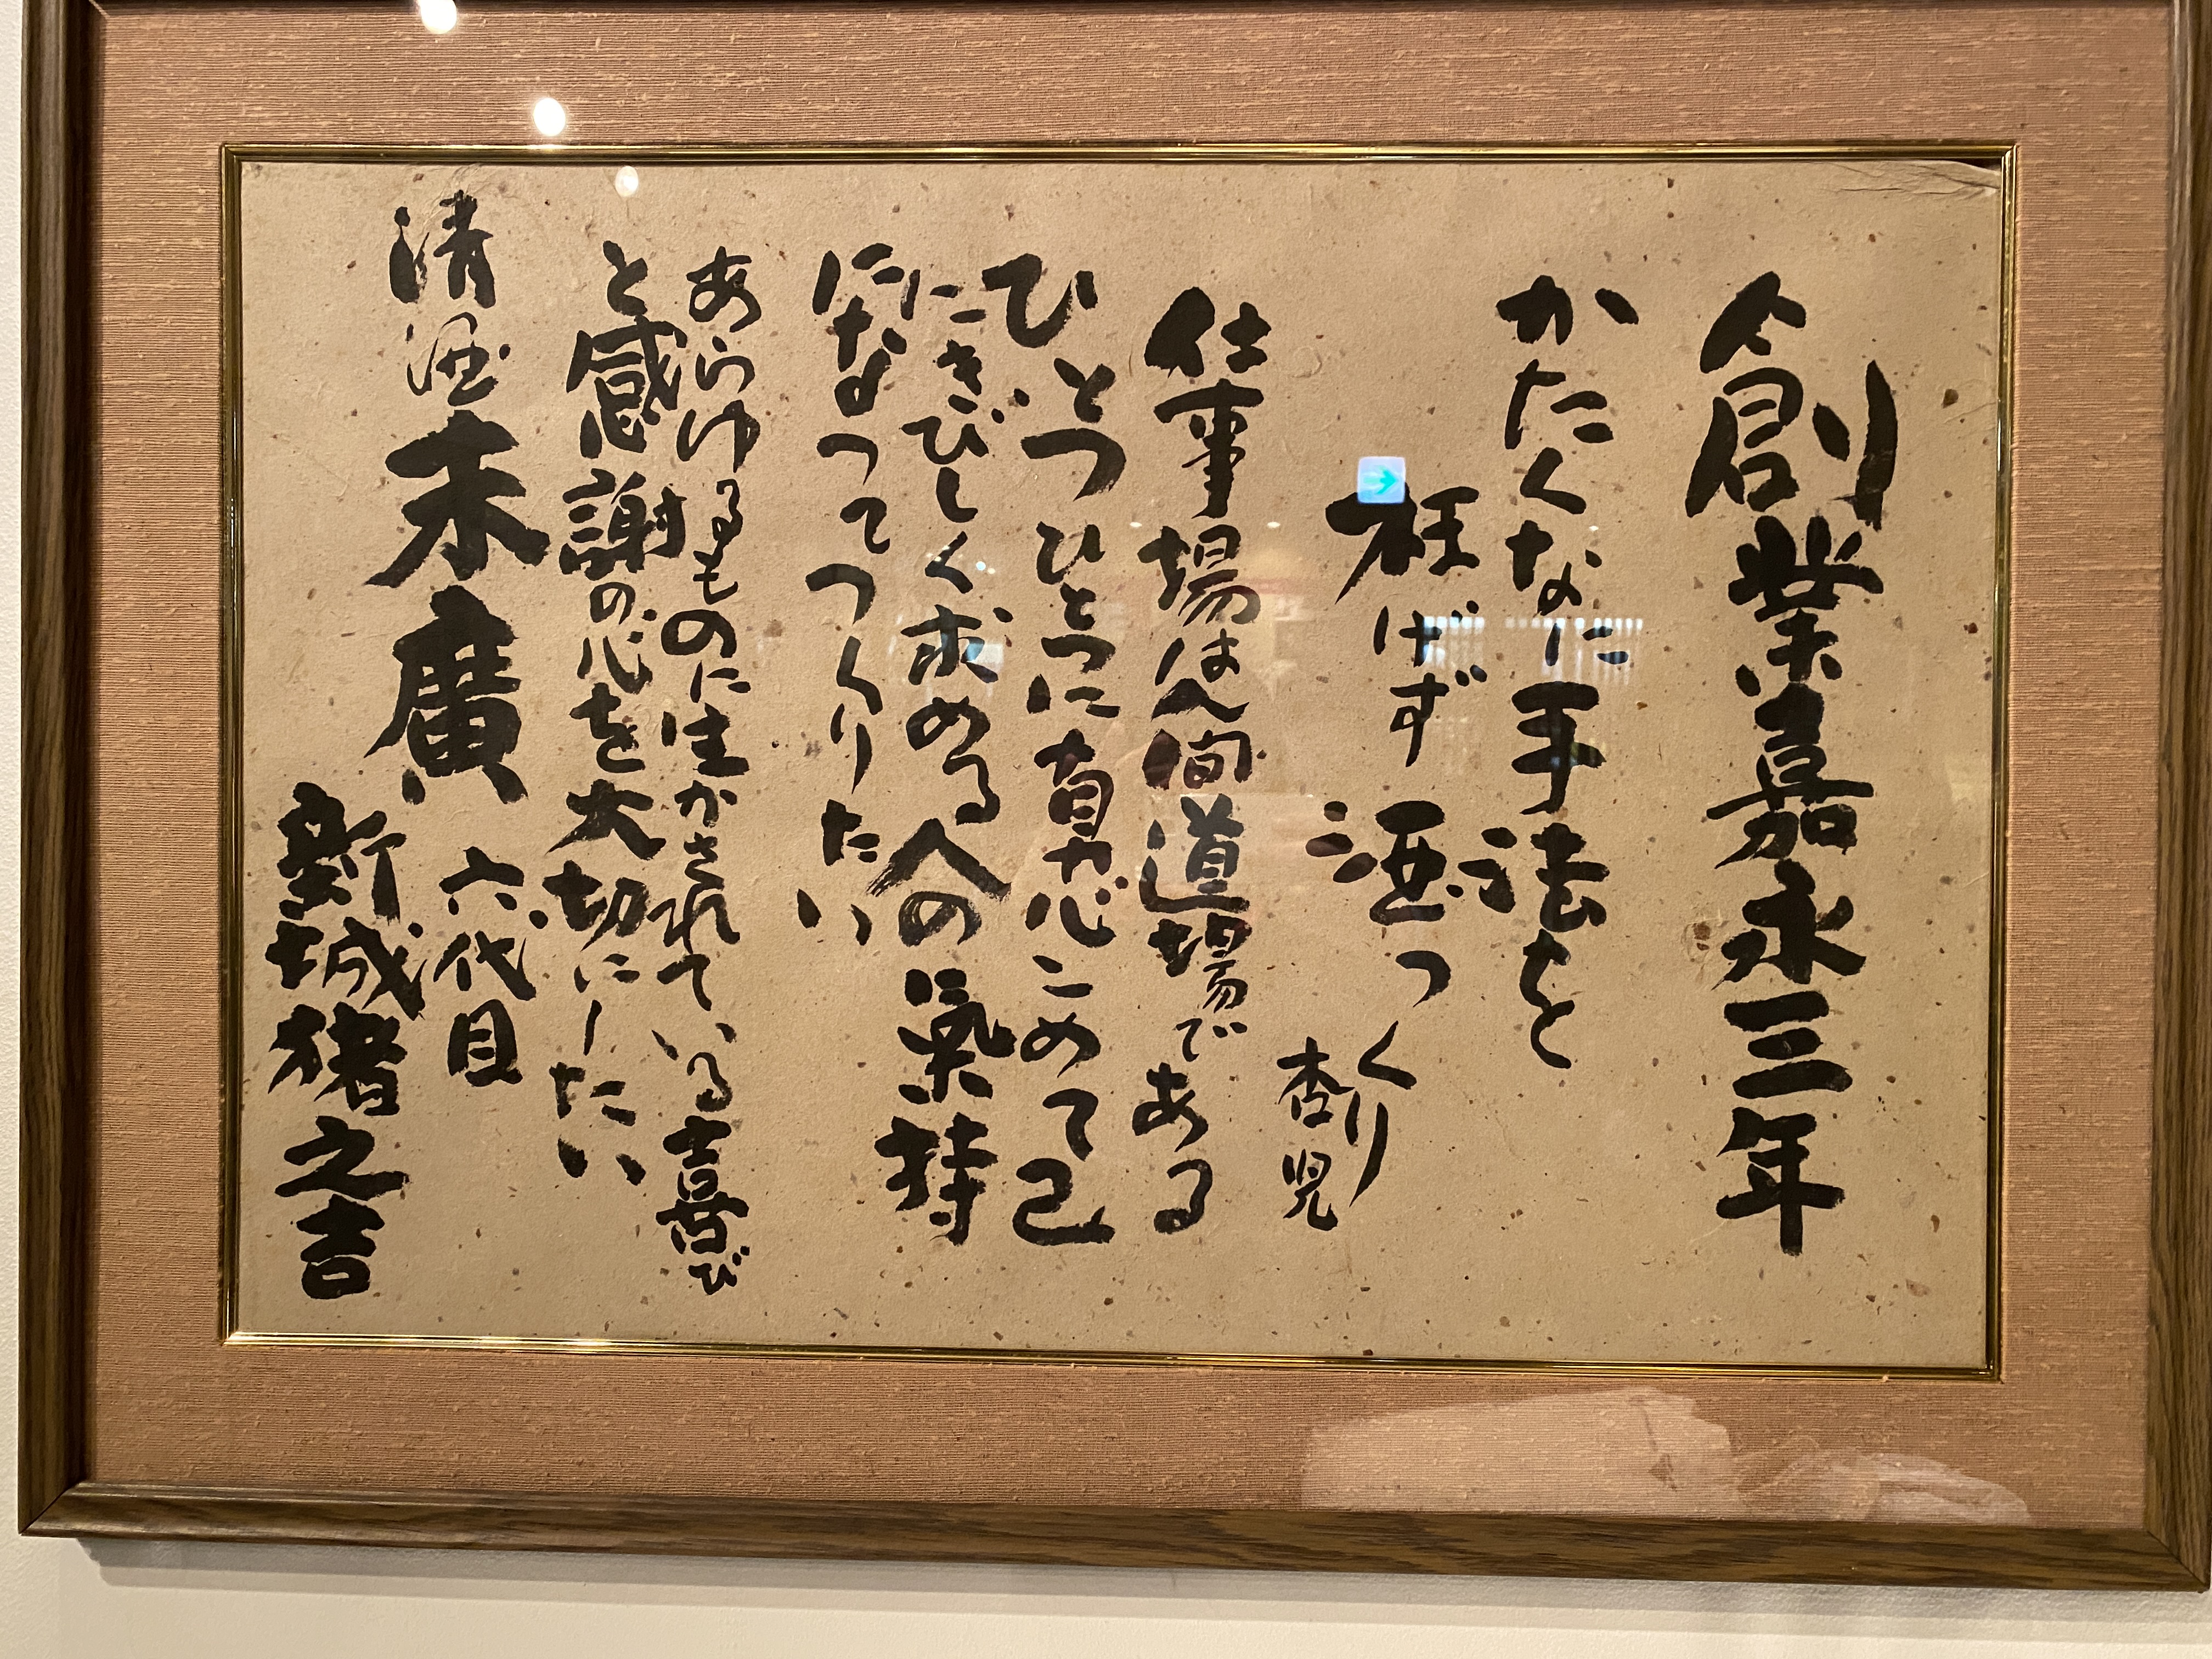 創業嘉永三年
かたくなに手法を
枉げず酒つくり
杏児
仕事場は人間道場である
ひとつひとつに真心こめて己
にきびしく求める人の氣持
になってつくりたい
あらゆるものに生かされている喜び
と感謝の心を大切にしたい
清酒末廣
六代目
新城猪之吉